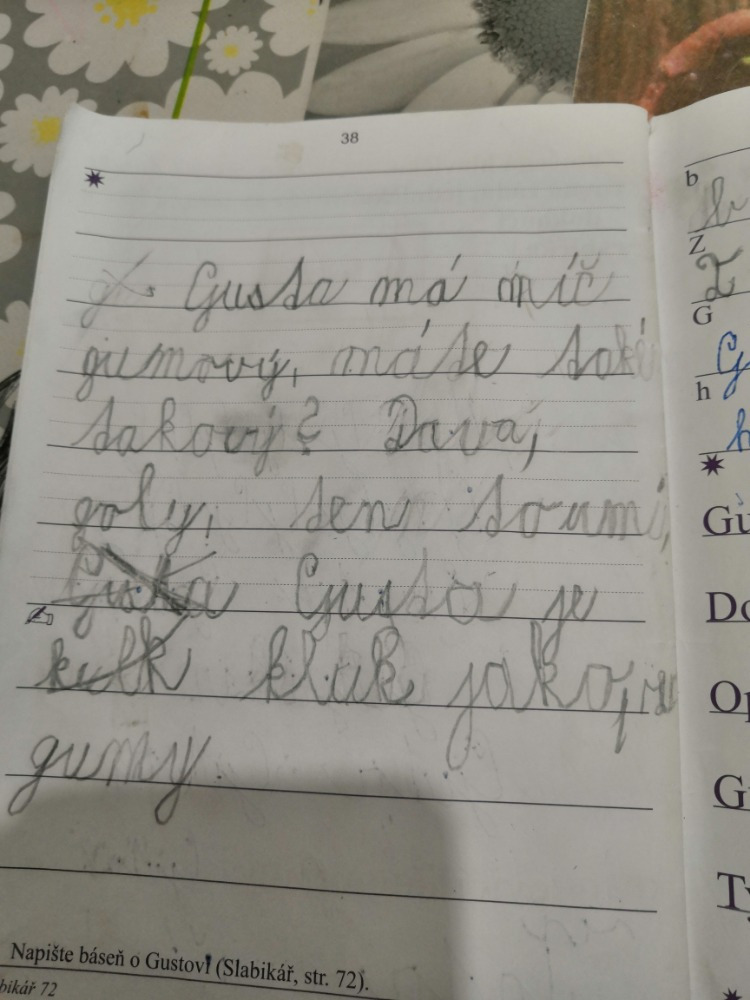 38
Gusta má míč
gumový, máte také
takový? Dává,
goly, ten to umí,
Gusta Gusta je
kulk kluk jako, z
gumy.
Napište báseň o Gustovi (Slabikář, str. 72).
bikář 72
b
Z
G
h